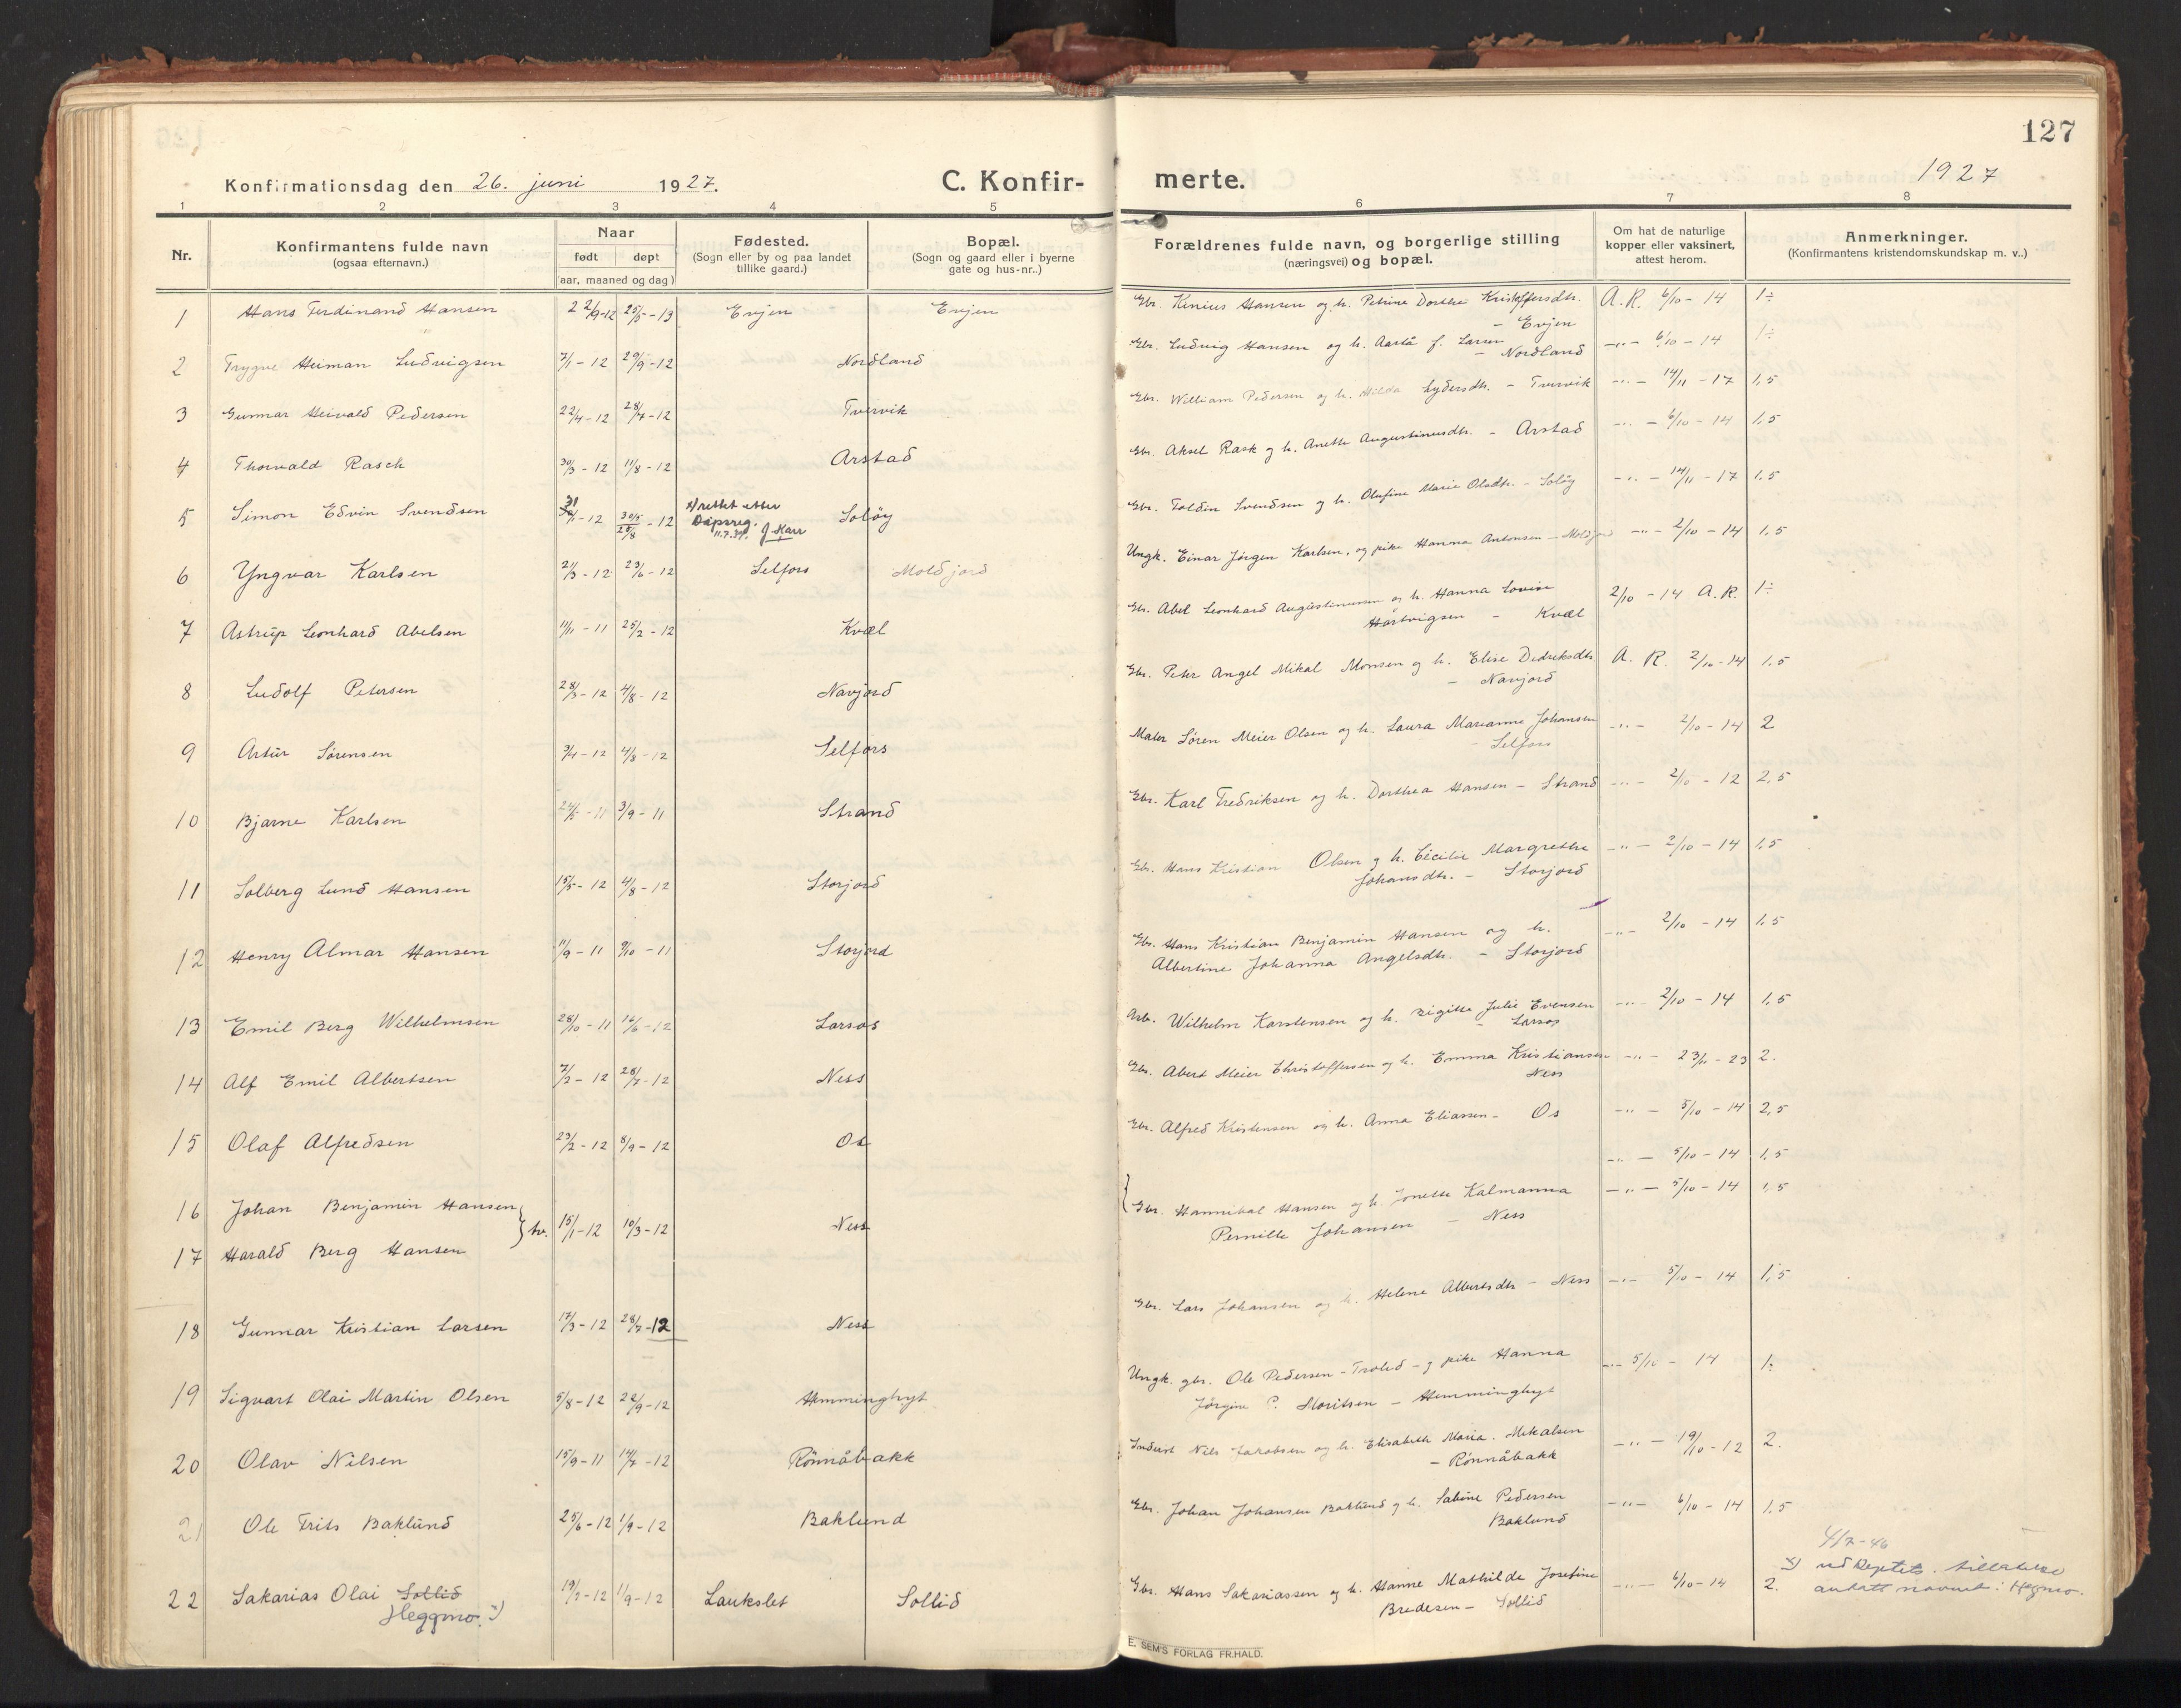 127
Konfirmationsdag den 26. juni 1927.
C. Konfir-
merte.
1927
1 2 3 4 5 6 7 8
Nr.
Konfirmantens fulde navn
(ogsaa efternavn.)
Naar
født døpt
(aar, maaned og dag)
Fødested.
(Sogn eller by og paa landet
tillike gaard.)
Bopæl.
(Sogn og gaard eller i byerne
gate og hus-nr.)
Forældrenes fulde navn, og borgerlige stilling
(næringsvei) og bopæl.
Om hat de naturlige
kopper eller vaksinert,
attest herom.
Anmerkninger.
(Konfirmantens kristendomskundskap m. v..)
1 Hans Ferdinand Hansen 22/9-12 25/5-13 Evjen Evjen Gbr. Kinius Hansen og h. Petrine Dorthea Kristoffersdtr. A.R. 6/10-14 1÷
- Evjen
2 Trygve Heiman Ludvigsen 7/1-12 29/9-12 Nordland Gbr. Ludvig Hansen og h. Aasta f. Larsen -"- 6/10-14 1÷
- Nordland
3 Gunnar Heivald Pedersen 22/4-12 28/7-12 Tvervik Gbr. William Pedersen og h. Hilda Lydersdtr. - Tvervik -"- 14/11-17 1,5
4 Thorvald Rasch 30/3-12 11/8-12 Arstad Gbr. Aksel Rask og h. Anette Augustinusdtr. - Arstad -"- 6/10-14 1,5
5 Simon Edvin Svendsen 31/1-12 30/5-12 Soløy Gbr. Toldin Svendsen og h. Olufine Marie Olsdtr. - Soløy -"- 14/11-17 1,5
x) rettet etter
Dåpsreg.
11.7.39. J Karr
6 Yngvar Karlsen 21/3-12 23/6-12 Selfors Moldjord Ungk. Einar Jørgen Karlsen, og pike Hanna Antonsen - Moldjord -"- 2/10-14 1,5
7 Astrup Leonhard Abelsen 11/11-11 25/2-12 Kvæl Gbr. Abel Leonhard Augustinussen og h. Hanna Lovise 2/10-14 A.R. 1÷
Hartvigsen - Kvæl
8 Ludolf Petersen 28/3-12 4/8-12 Navjord Gbr. Peter Angel Mikal Monsen og h. Elise Dedreksdtr A. R. 2/10-14 1,5
- Navjord
9 Artur Sørensen 3/4-12 4/8-12 Selfors Maler Søren Meier Olsen og h. Laura Marianne Johansen -"- 2/10-14 2
- Selfors
10 Bjarne Karlsen 24/5-11 3/9-11 Strand Gbr. Karl Fredriksen og h. Dorthea Hansen - Strand -"- 2/10-12 2,5
11 Solberg Lund Hansen 15/5-12 4/8-12 Storjord Gbr. Hans Kristian Olsen og h. Cecilie Margrethe -"- 2/10-14 1,5
Johansdtr. - Storjord
12 Henry Almar Hansen 11/9-11 9/10-11 Storjord Gbr. Hans Kristian Benjamin Hansen og h. -"- 2/10-14 1,5
Albertine Johanna Angelsdtr. - Storjord
13 Emil Berg Wilhelmsen 28/10-11 16/6-12 Larsos Arb. Wilhelm Karstensen og h. Birgitte Julie Evensen -"- 2/10-14 1,5
- Larsos
14 Alf Emil Albertsen 7/2-12 28/7-12 Ness Gbr. Abert Meier Christoffersen og h. Emma Kristiansen -"- 23/11-23 2.
Ness
15 Olaf Alfredsen 23/2-12 8/9-12 Os Gbr. Alfred Kristensen og h. Anna Eliassen - Os -"- 5/10-14 2,5
16 Johan Benjamin Hansen -"- 5/10-14 1,5
} tv. 15/1-12 10/3-12 Ness { Gbr. Hannibal Hansen og h. Jonette Kalmanna -"- 5/10-14 1,5
17 Harald Berg Hansen Pernille Johansen - Ness
18 Gunnar Kristian Larsen 17/3-12 28/7-12 Ness Gbr. Lars Johansen og h. Helene Albertsdtr - Ness -"- 5/10-14 1,5
19 Sigvart Olai Martin Olsen 5/8-12 22/9-12 Hemminghyt Ungk. gbr. Ole Pedersen - Trolid - og pike Hanna -"- 5/10-14 1÷
Jørgine P. Moritsen - Hemminghyt
20 Olav Nilsen 15/9-11 14/7-12 Rönnåbakk Inderst Nils Jakobsen og h. Elisabeth Maria. Mikalsen -"- 19/10-12 2.
- Rönnåbakk
21 Ole Frits Baklund 25/6-12 1/9-12 Baklund Gbr. Johan Johansen Baklund og h. Sabine Pedersen -"- 6/10-14 1,5
Baklund
22 Sakarias Olai Sollid 19/7-12 1/9-12 Laukslet Sollid Gbr. Hans Sakariassen og h. Hanne Mathilde Josefine -"- 6/10-14 2.
Heggmo. x) Bredesen - Sollid
4/7-46
x) ved Deptets. tillatelse
antatt navnet: Hegmo.
E. SEM'S FORLAG FR.HALD.